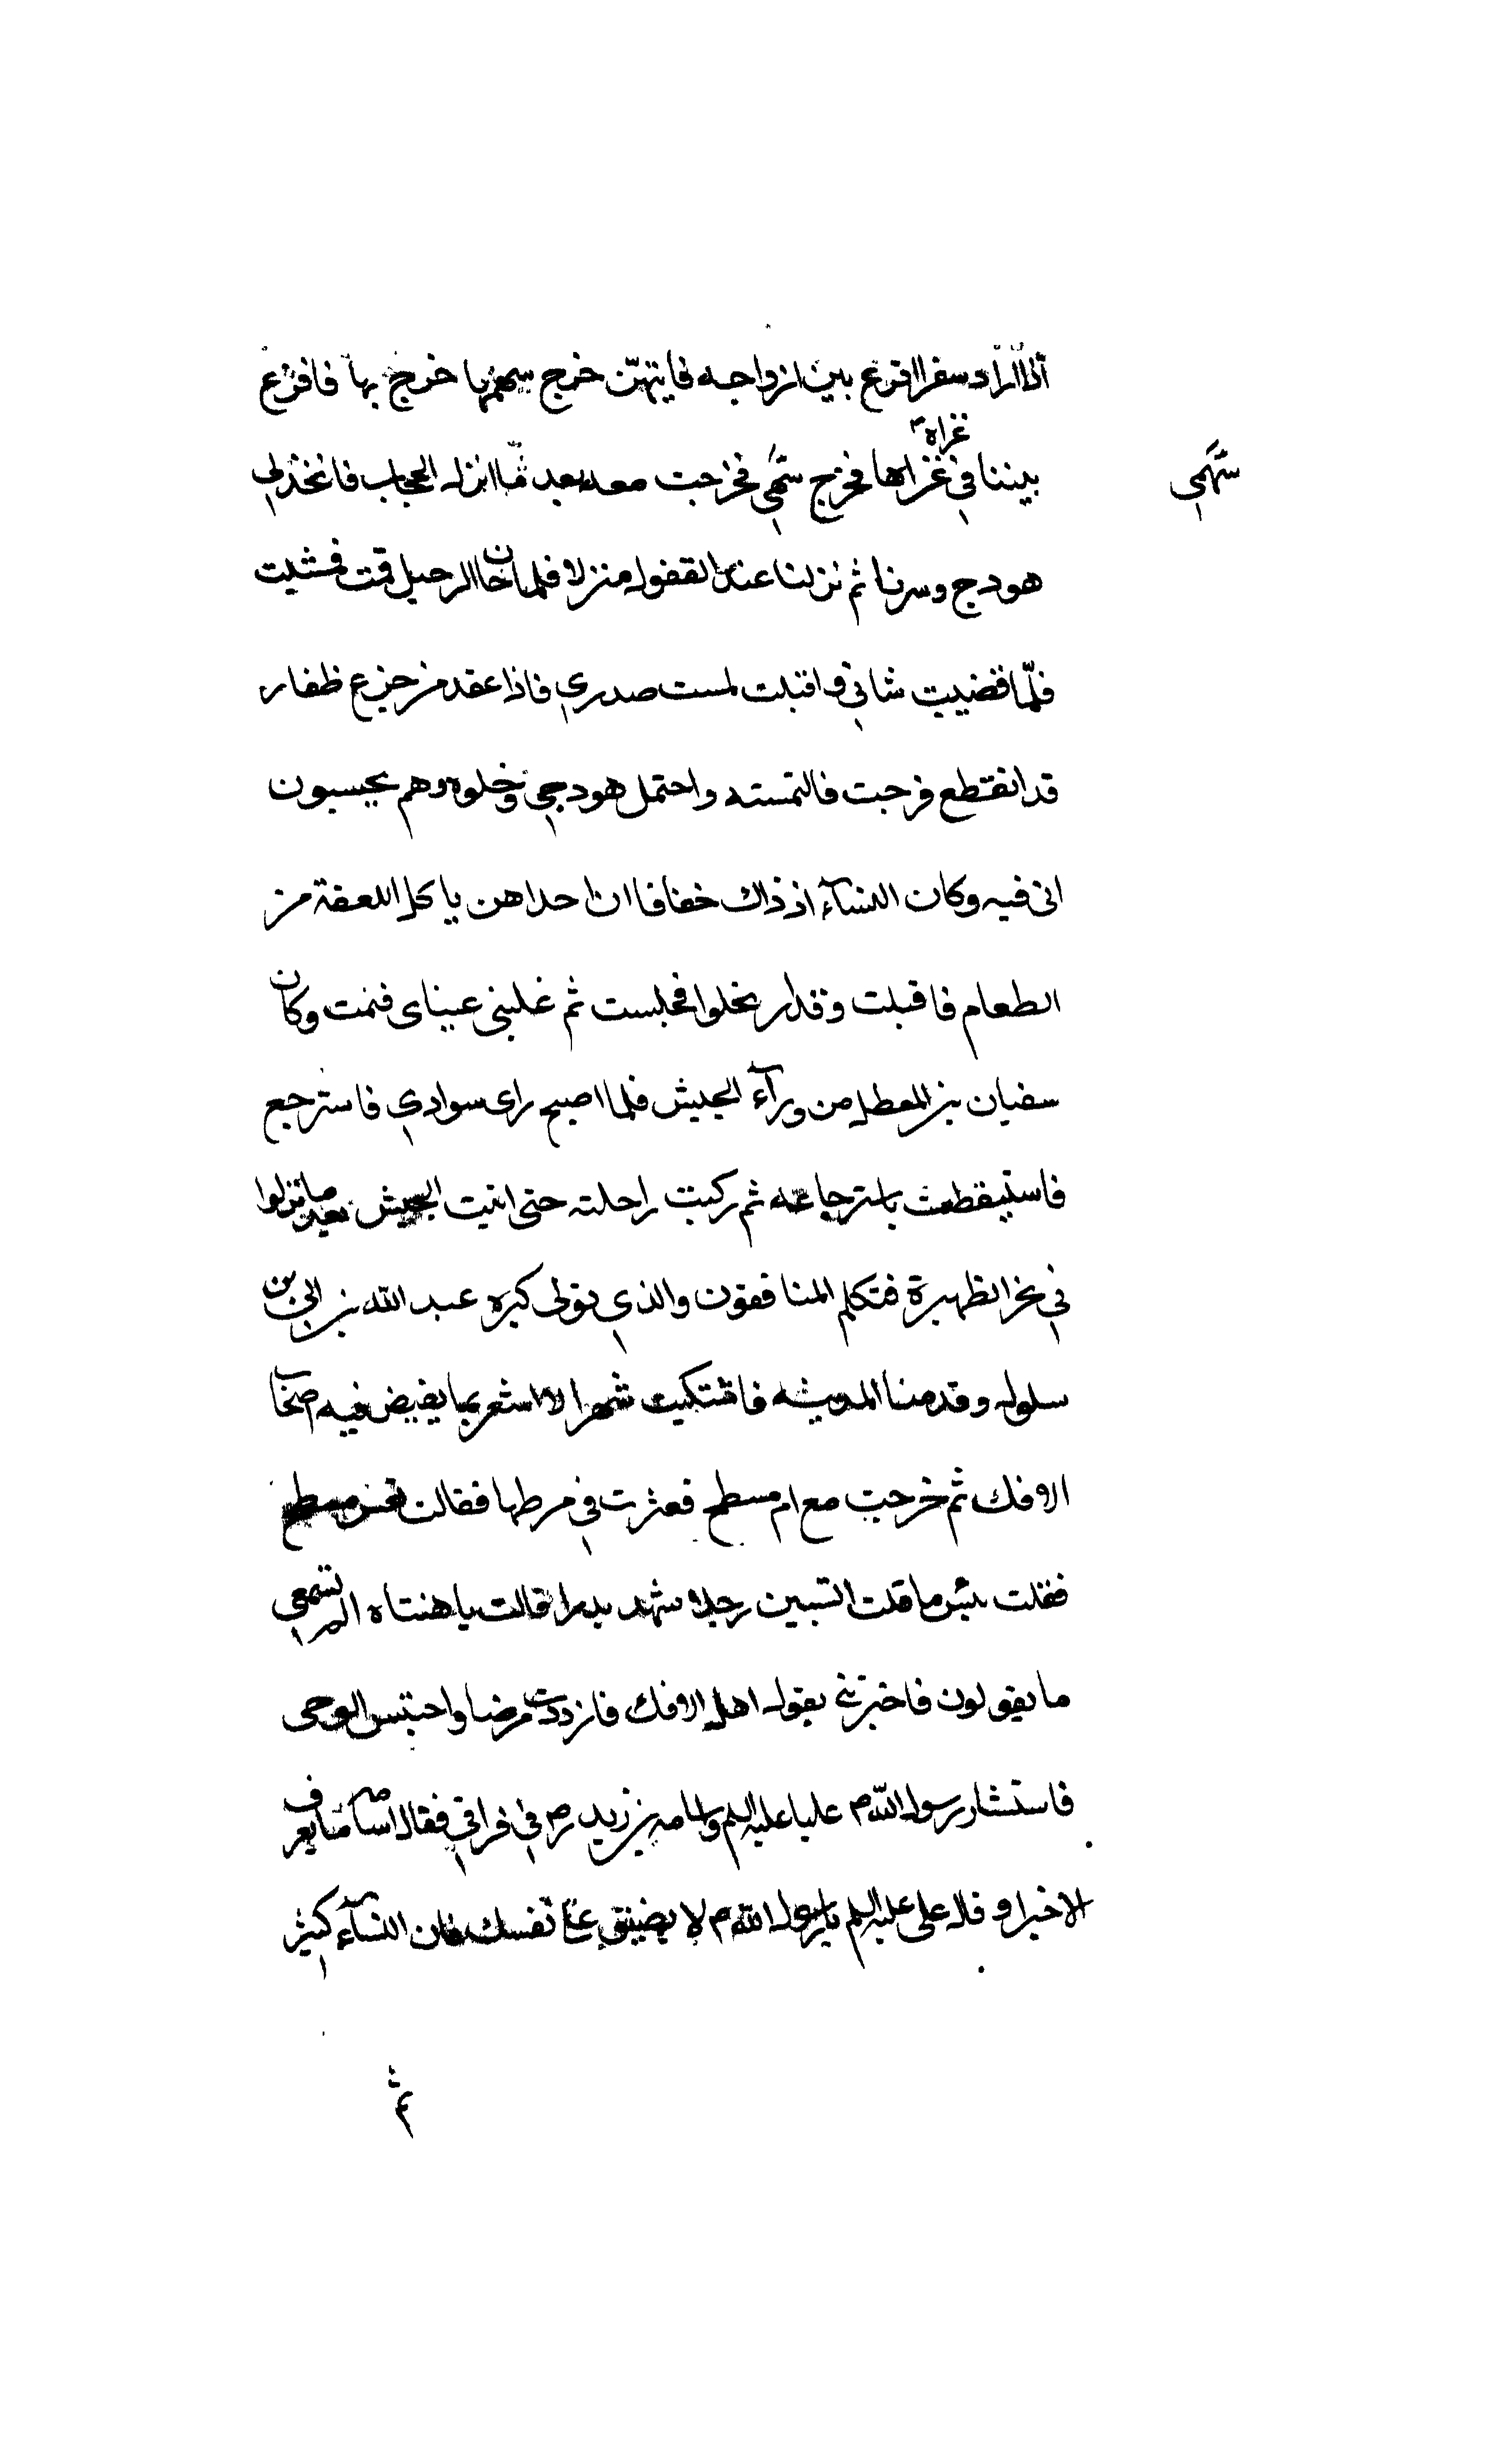 اذا اراد سفرا اقرع بين ازواجه فايتهنّ خرج سهمها خرج بها فاقرع
غزاه
بيننا في غزاها فخرج سهمي فخرجت معه بعد ما انزل الحجاب فاتخذ لي
سهمي
هودج وسرنا ثم نزلنا عند القفول منزلا فلما خان الرحيل قمت فمشيت
فلمّا قضيت شاني واقبلت لمست صدري فاذا عقد من جزع ظفار
قد انقطع فرجعت فالتمسته واحتمل هودجي وخلوه وهم يحسبون
انى فيه وكان النسآء اذ ذاك خفافا ان احداهن ياكل اللعقة من
الطعام فاقبلت وقد ارتحلوا فجلست ثم غلبنى عيناى فنمت وكان
سفيان بن المعطل من ورآء الجيش فلما اصبح راى سوادي فاسترجع
فاستيقظت باسترجاعه ثم ركبت راحلته حتى اتيت الجيش بعد ما نزلوا
في نحر الظهيرة فتكلم المنافقون والذي تولى كبره عبد الله بن ابي بن
سلول وقدمنا المدينه فاشتكيت شهرا لا اشعر بما يفيض فيه اصحاب
الافك ثم خرجت مع ام مسطح فعثرت في مرطها فقالت تعس مسطح
فقلت بئس ما قلت اتسبين رجلا شهد بدرا قالت يا هنتاه الم تسمعي
ما يقولون فاخبرتني بقول اهل الافك فازددت مرضا واحتبس الوحى
فاستشار رسول اللّه ص عليا عليه السلم واسامه بن زيد رض في فراقي فقال اسامه ما يعرف
الا خيرا وقال على عليه السلم يا رسول الله ص لا يضيق عنا نفسك فان النسآء كثير
ثم